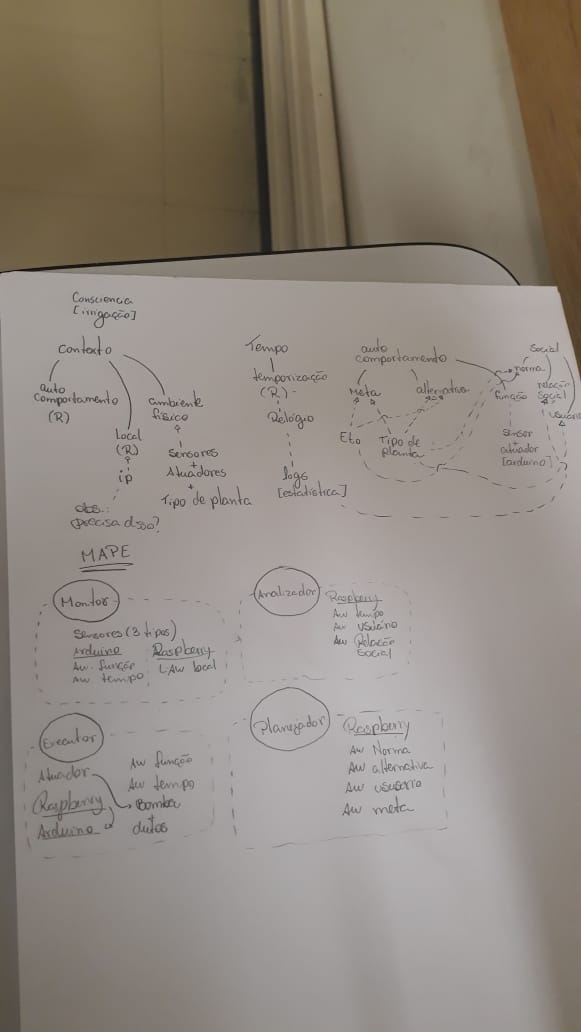 Consciencia
[irrigação]
Contexto
auto
comportamento
(R)
Local
(R)
ip
obs.:
precisa disso?
ambiente
físico
Sensores
+
Atuadores
+
Tipo de planta
Tempo
temporização
(R)
Relógio
logs
[estatística]
auto
comportamento
Meta
alternativa
Eto
Tipo de
planta
Social
norma
função
relação
social
usuário
Sensor
+
atuador
[arduino]
MAPE
Monitor
Sensores (3 tipos)
Arduino
Aw. função
Aw tempo
Raspberry
Aw local
Analizador
Raspberry
Aw tempo
Aw usuário
Aw Relação
social
Executor
Atuador
Raspberry
Arduino
Aw função
Aw tempo
Bomba
dutos
Planejador
Raspberry
Aw Norma
Aw alternativa
Aw ususario
Aw meta